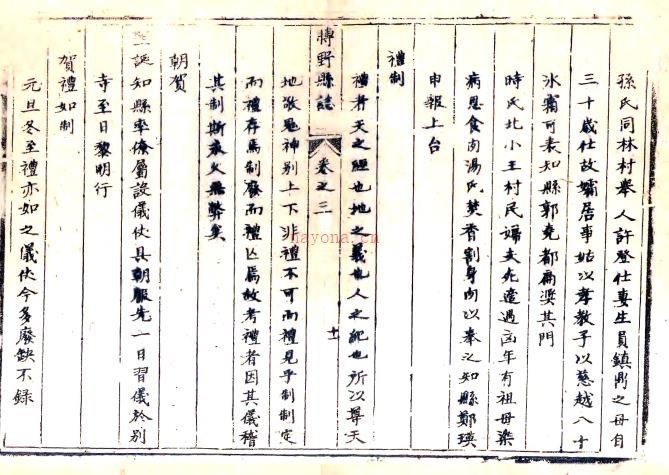 孫氏同林村舉人許登仕妻生員鎮彤之母自
三十歲仕故孀居事姑以孝教子以慈越八十
冰霜可表知縣郭堯都扁獎其門
時氏北小王村民婦夫死遭遇凶年有祖母染
病思食肉湯氏焚香割身肉以奉之知縣鄭瑛
申報上台
禮制
禮者天之經也地之義也人之紀也所以尊天
博野縣誌 卷之三 十
地敬鬼神别上下非禮不可而禮見乎制制定
而禮存焉制廢而禮亡焉故考禮者因其儀稽
其制斯衰久無弊矣
朝賀
聖誕知縣率僚屬設儀仗具朝服先一日習儀於别
寺至日黎明行
賀禮如制
元旦冬至禮亦如之儀仗今多廢缺不錄
hayona.cn